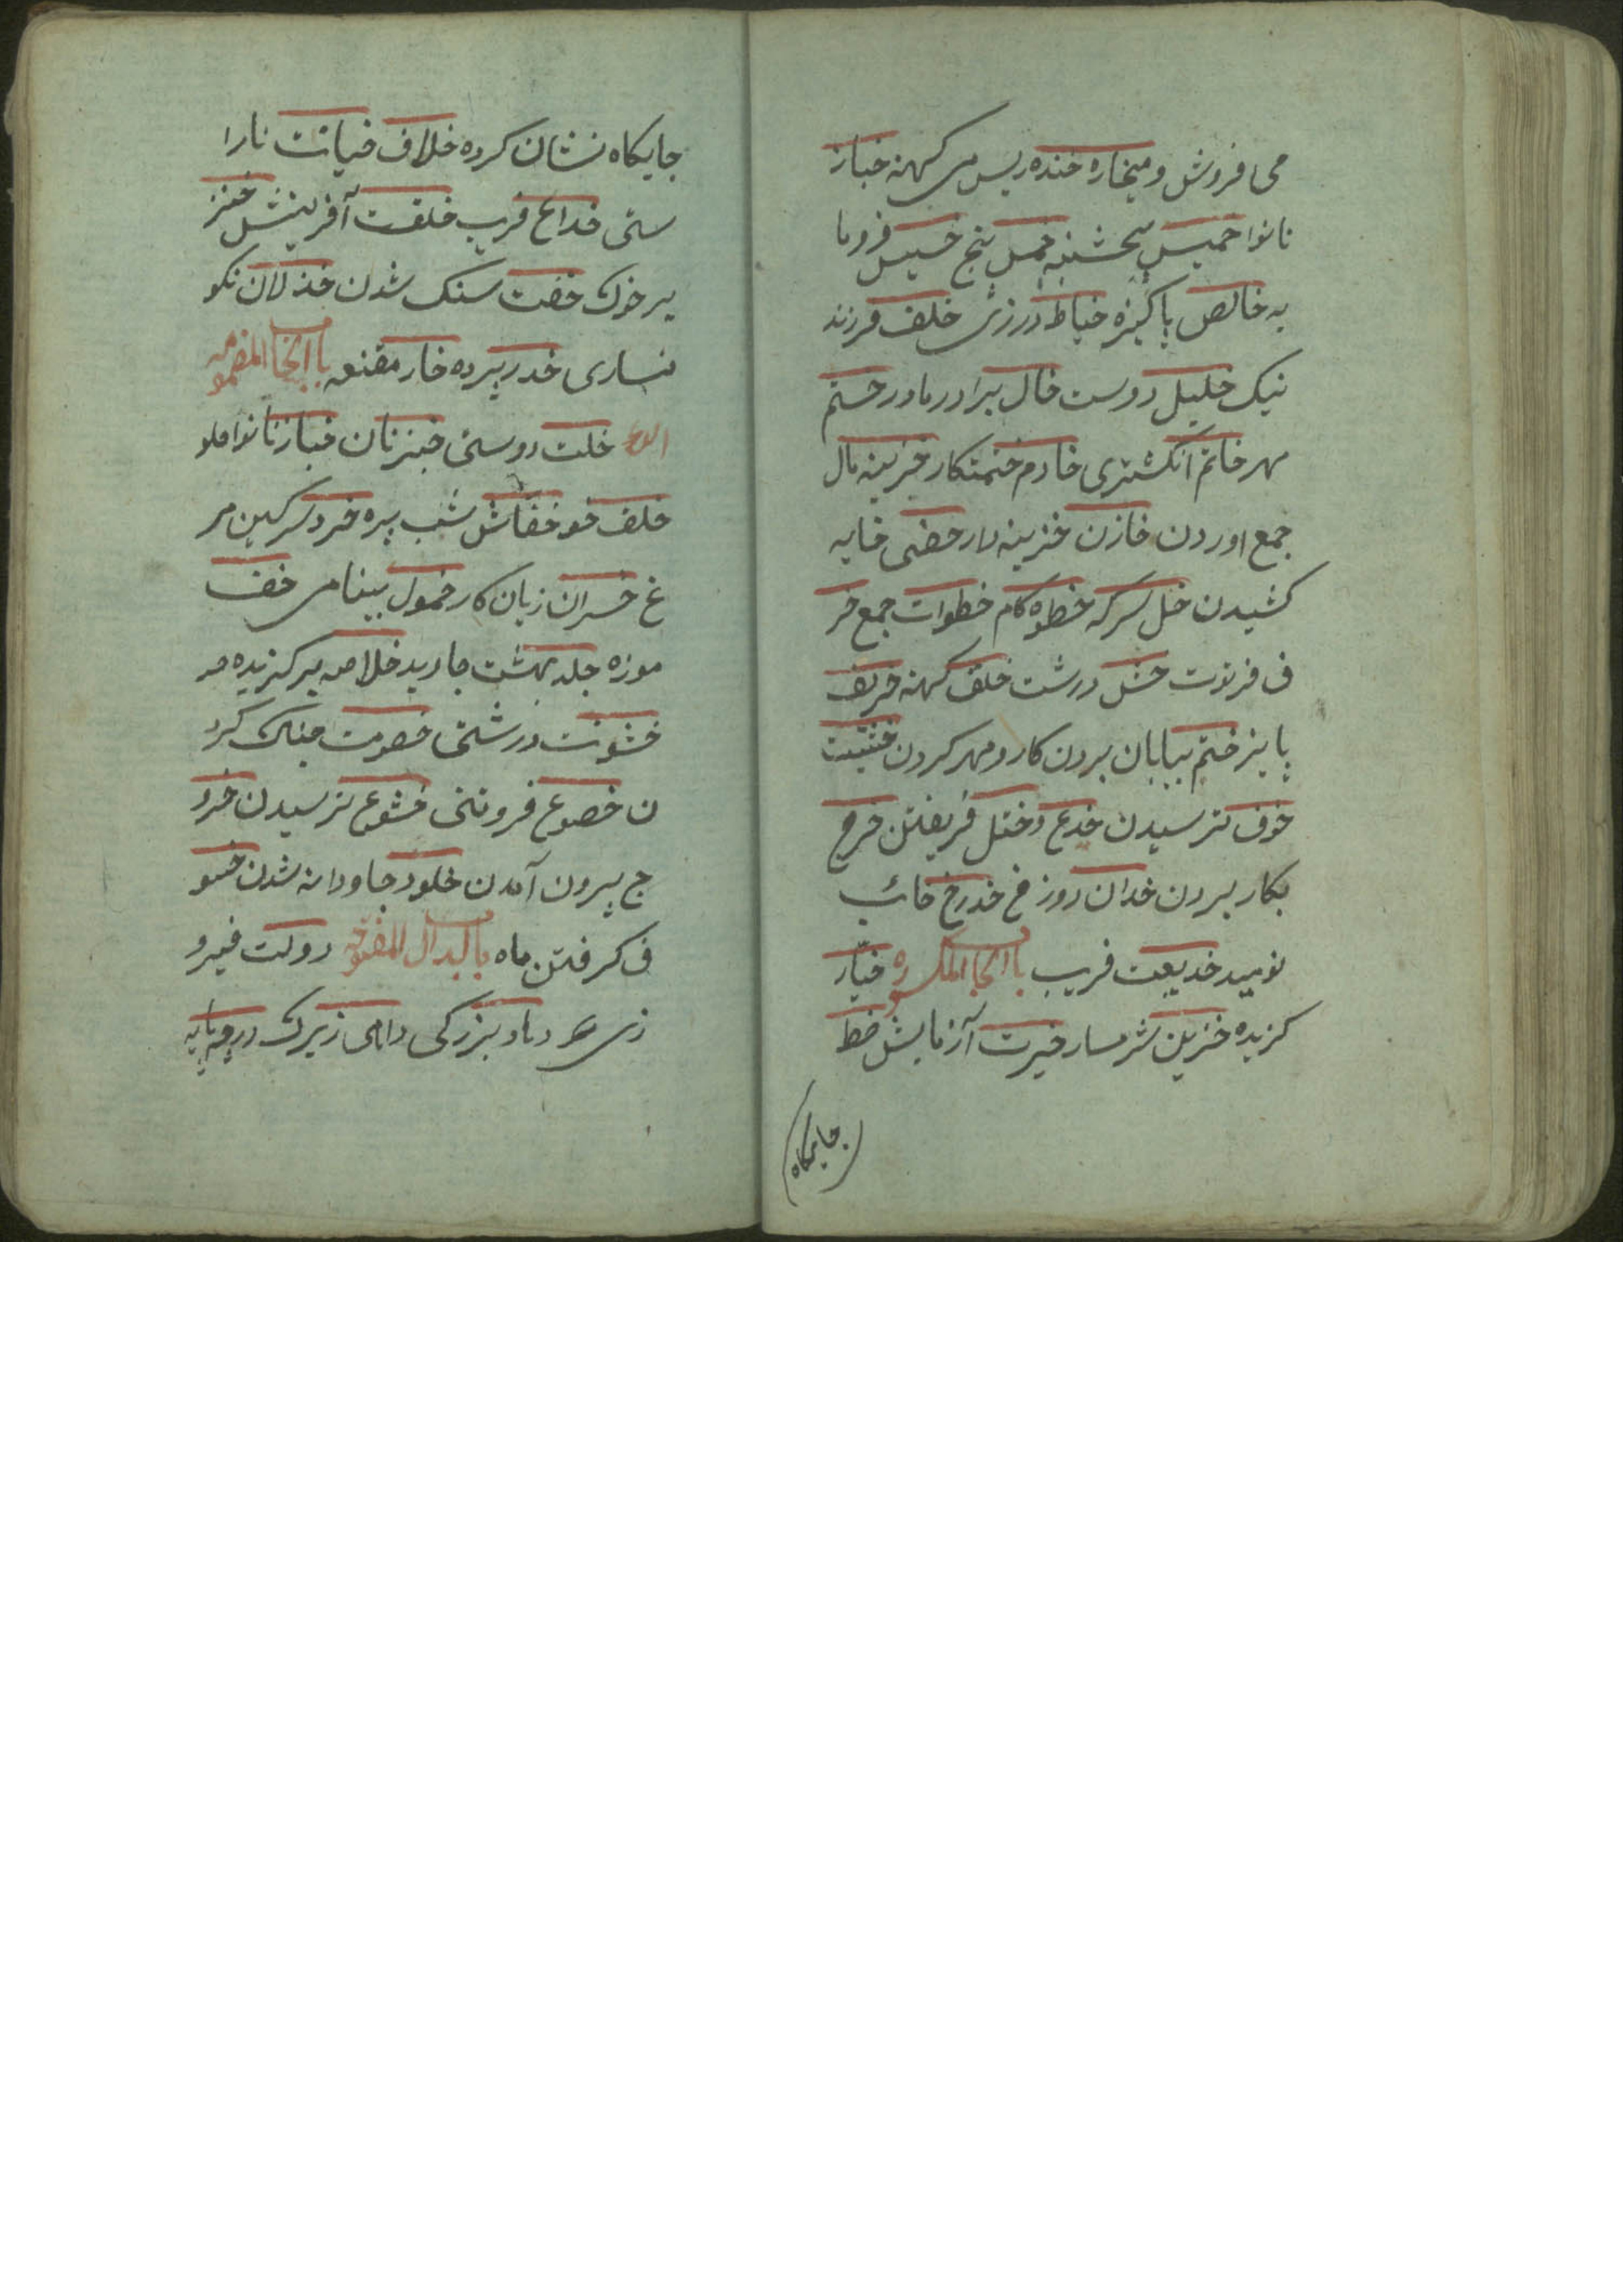 می فروش و میخاره خنده ریس می کهنه خباز
نانوا خمیس پنجشنبه خمس پنج خسیس فروما
یه خالص پاکیزه خیاط درزی خلف فرزند
نیک خلیل دوست خال برادر مادر ختم
مهر خاتم انکشتری خادم خدمتکار خزینه مال
جمع اوردن خازن خزینه دار خصی خایه
کشیدن خل سرکه خطوه کام خطوات جمع خر
ف فرتوت خشن درشت خلق کهنه خریف
پاییز ختم بپایان بردن کار و مهر کردن خشیت
خوف ترسیدن خدع و ختل فریفتن خرج
بکار بردن خدان دوزخ خدرخ خائب
نومید خدیعت فریب باب الخا المکسوره خیار
کزیده خزین شرمسار خبرت آزمایش خط
جایکاه
جایکاه نشان کرده خلاف خیانت نارا
ستی خداع فریب خلقت آفرینش خنز
یر خوک خفت سنک شدن خذلان نکو
نساری خدر پرده خمار مقنعه باب الخا المضمومه
خلت دوستی خبز نان خباز نانوا خلو
خلف خو خفاش شب پره خرد سرکین مر
غ خسران زیان کار خمول بینامی خف
موزه خلد بهشت جاوید خلاصه برکزیده
خشونت درشتی خصومت جنک کرد
ن خضوع فروتنی خشوع ترسیدن خرو
ج بیرون آمدن خلود جاودانه شدن خسو
ف کرفتن ماه باب الدال المفتوحه دولت فیرو
زی دهاد بزرکی داهی زیرک درجه پایه